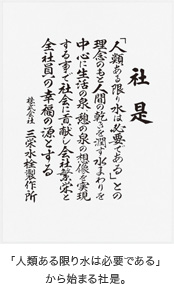 社是
「人類ある限り水は必要である」との
理念のもと人間の乾きを潤す水まわりを
中心に生活の泉、憩の泉の相像を実現
する事で社会に貢献し会社繁栄と
全社員の幸福の源とする
株式会社 三栄水栓製作所
「人類ある限り水は必要である」
から始まる社是。